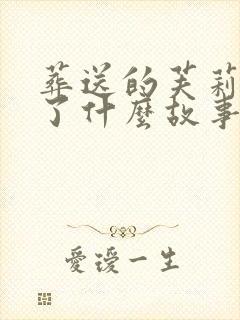 葬送的芙莉
了什麼故事
愛璦一生